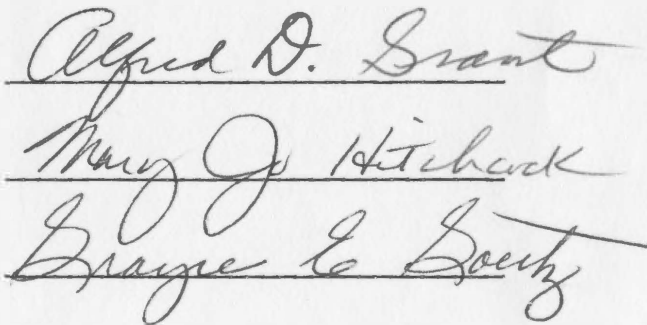 Alfred D. Grant
Mary Jo Hitchcock
Grayce E Goertz